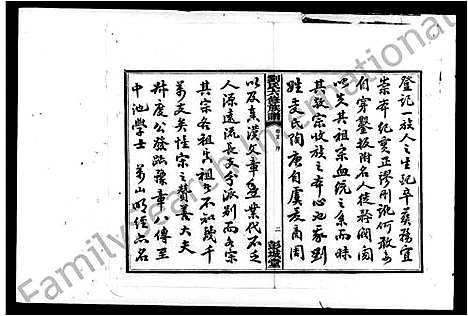 登記一族人之生配卒葬務宜
崇本紀實正謬刊訛何敢妄
自穿鑿扳附名人徒誇閥閱
以失其祖宗血統之系而昧
其敦宗收族之本心也我劉
姓受氏陶唐自虞夏商周
劉氏六修族譜
序
二
彭城堂
以及秦漢文章勳業代不乏
人源遠流長支分派別而各宗
其宗各祖其祖不知幾千
萬支矣惟宗之贊善大夫
公發跡豫章八傳至
中池學士 萬山 明經六名
FamilySearch International